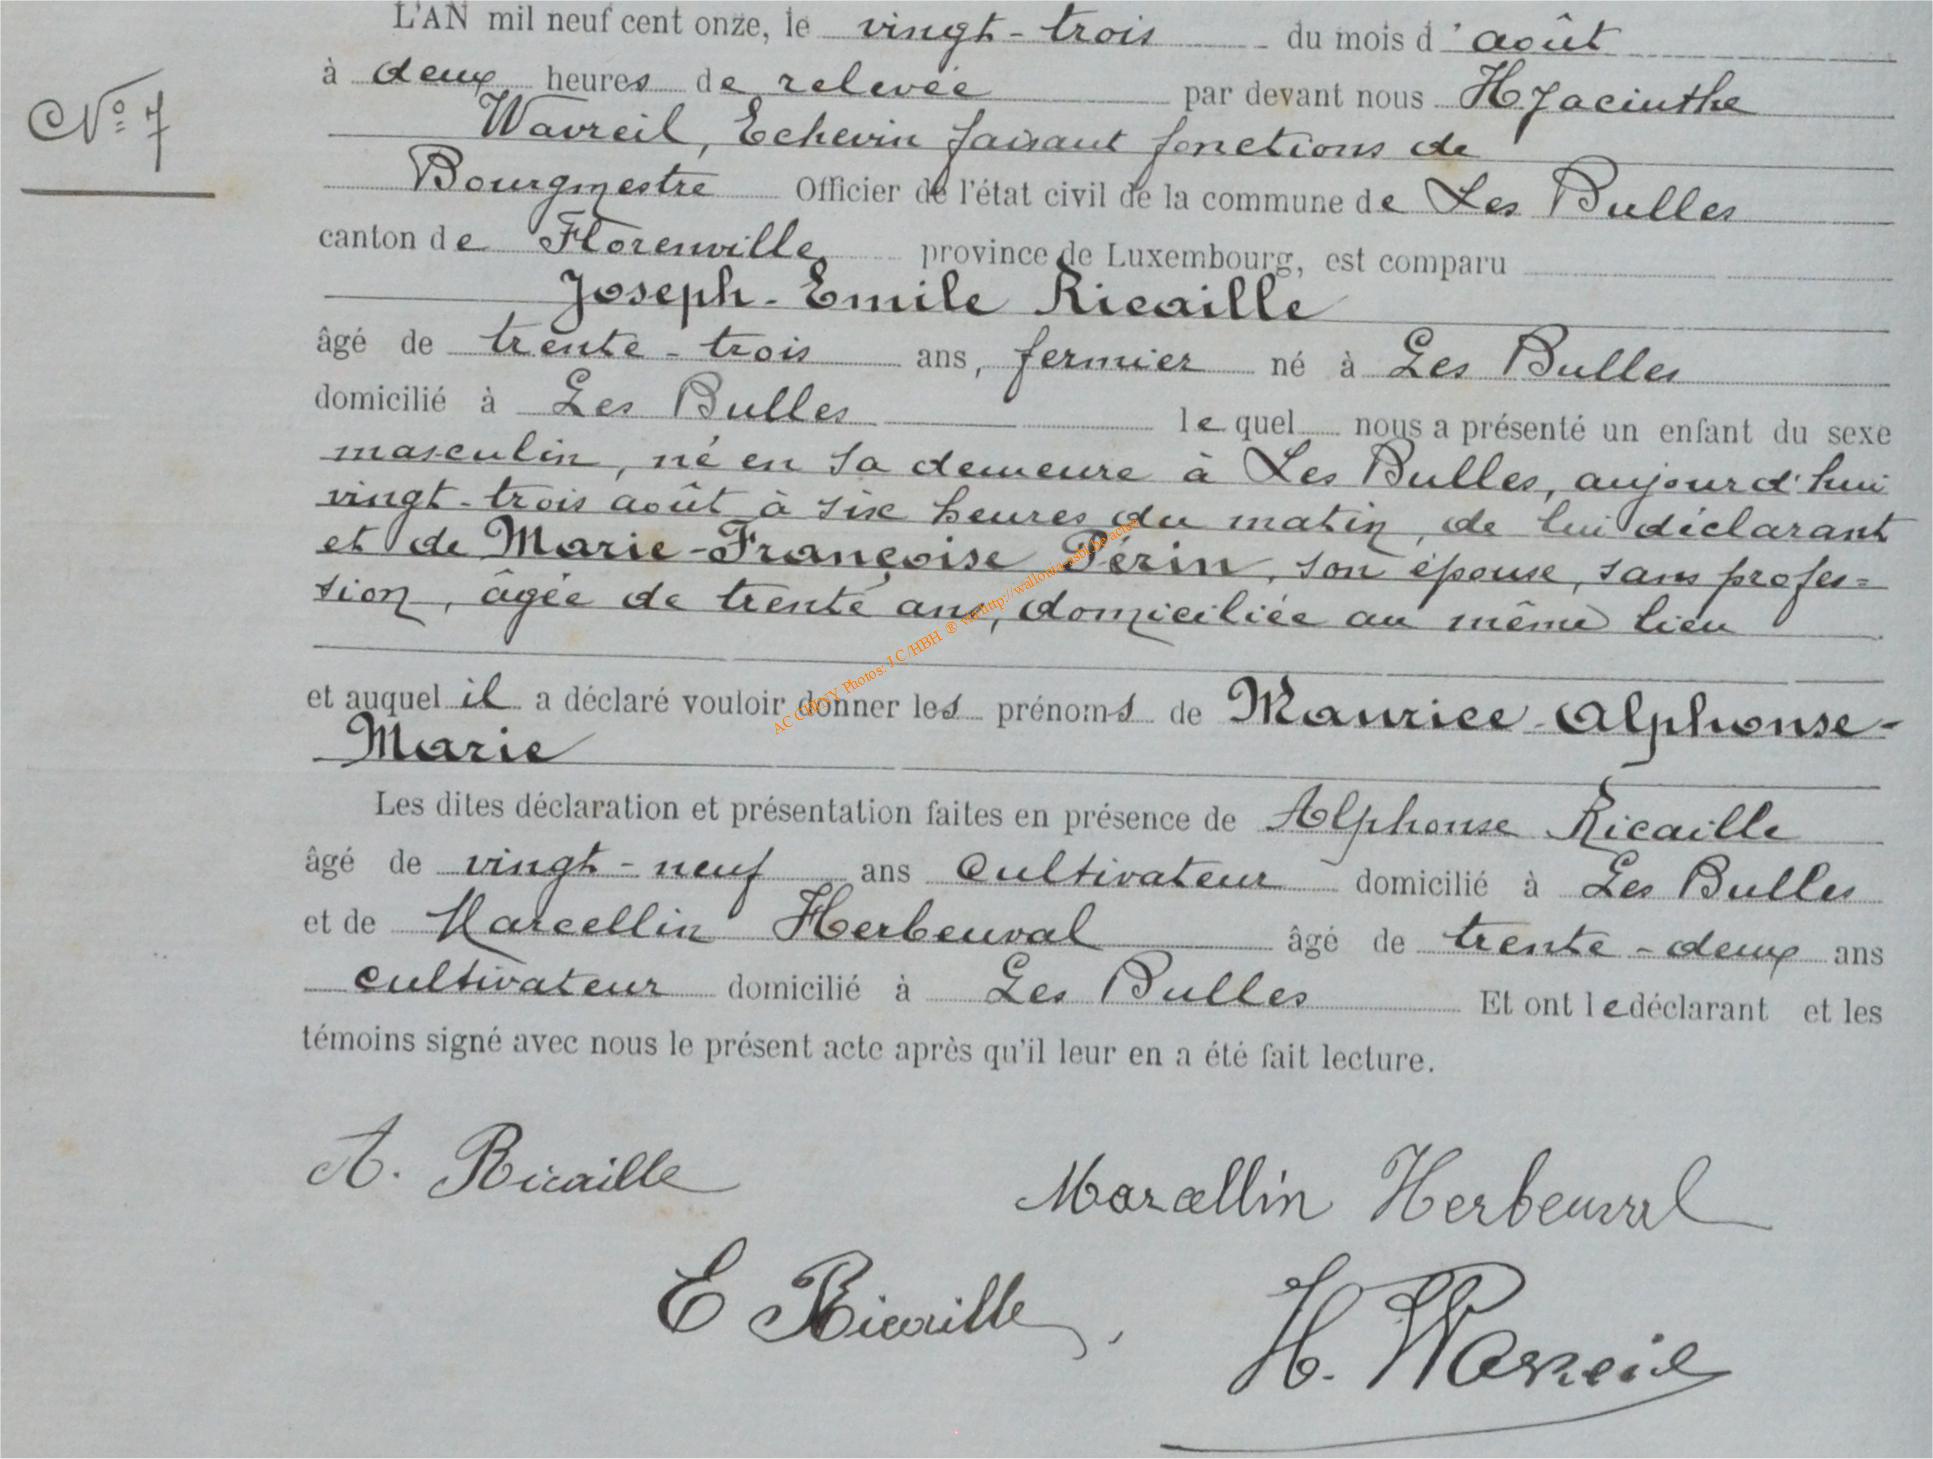 L'AN mil neuf cent onze, le vingt-trois du mois d'août
N° 7
à deux heures de relevée par devant nous Hyacinthe
Wavreil, Echevin faisant fonctions de
Bourgmestre Officier de l'état civil de la commune de Les Bulles
canton de Florenville province de Luxembourg, est comparu
Joseph-Emile Ricaille
âgé de trente-trois ans, fermier né à Les Bulles
domicilié à Les Bulles lequel nous a présenté un enfant du sexe
masculin, né en sa demeure à Les Bulles, aujourd'hui
vingt-trois août à six heures du matin, de lui déclarant
et de Marie-Françoise Périn, son épouse, sans profes=
sion, âgée de trente ans, domiciliée au même lieu
AC CHINY Photos: J C/HBH ®
et auquel il a déclaré vouloir donner les prénoms de Maurice-Alphonse-
Marie
Les dites déclaration et présentation faites en présence de Alphonse Ricaille
âgé de vingt-neuf ans cultivateur domicilié à Les Bulles
et de Marcellin Herbeuval âgé de trente-deux ans
cultivateur domicilié à Les Bulles Et ont le déclarant et les
témoins signé avec nous le présent acte après qu'il leur en a été fait lecture.
A. Ricaille
Marcellin Herbeuval
E Ricaille,
H. Wavreil